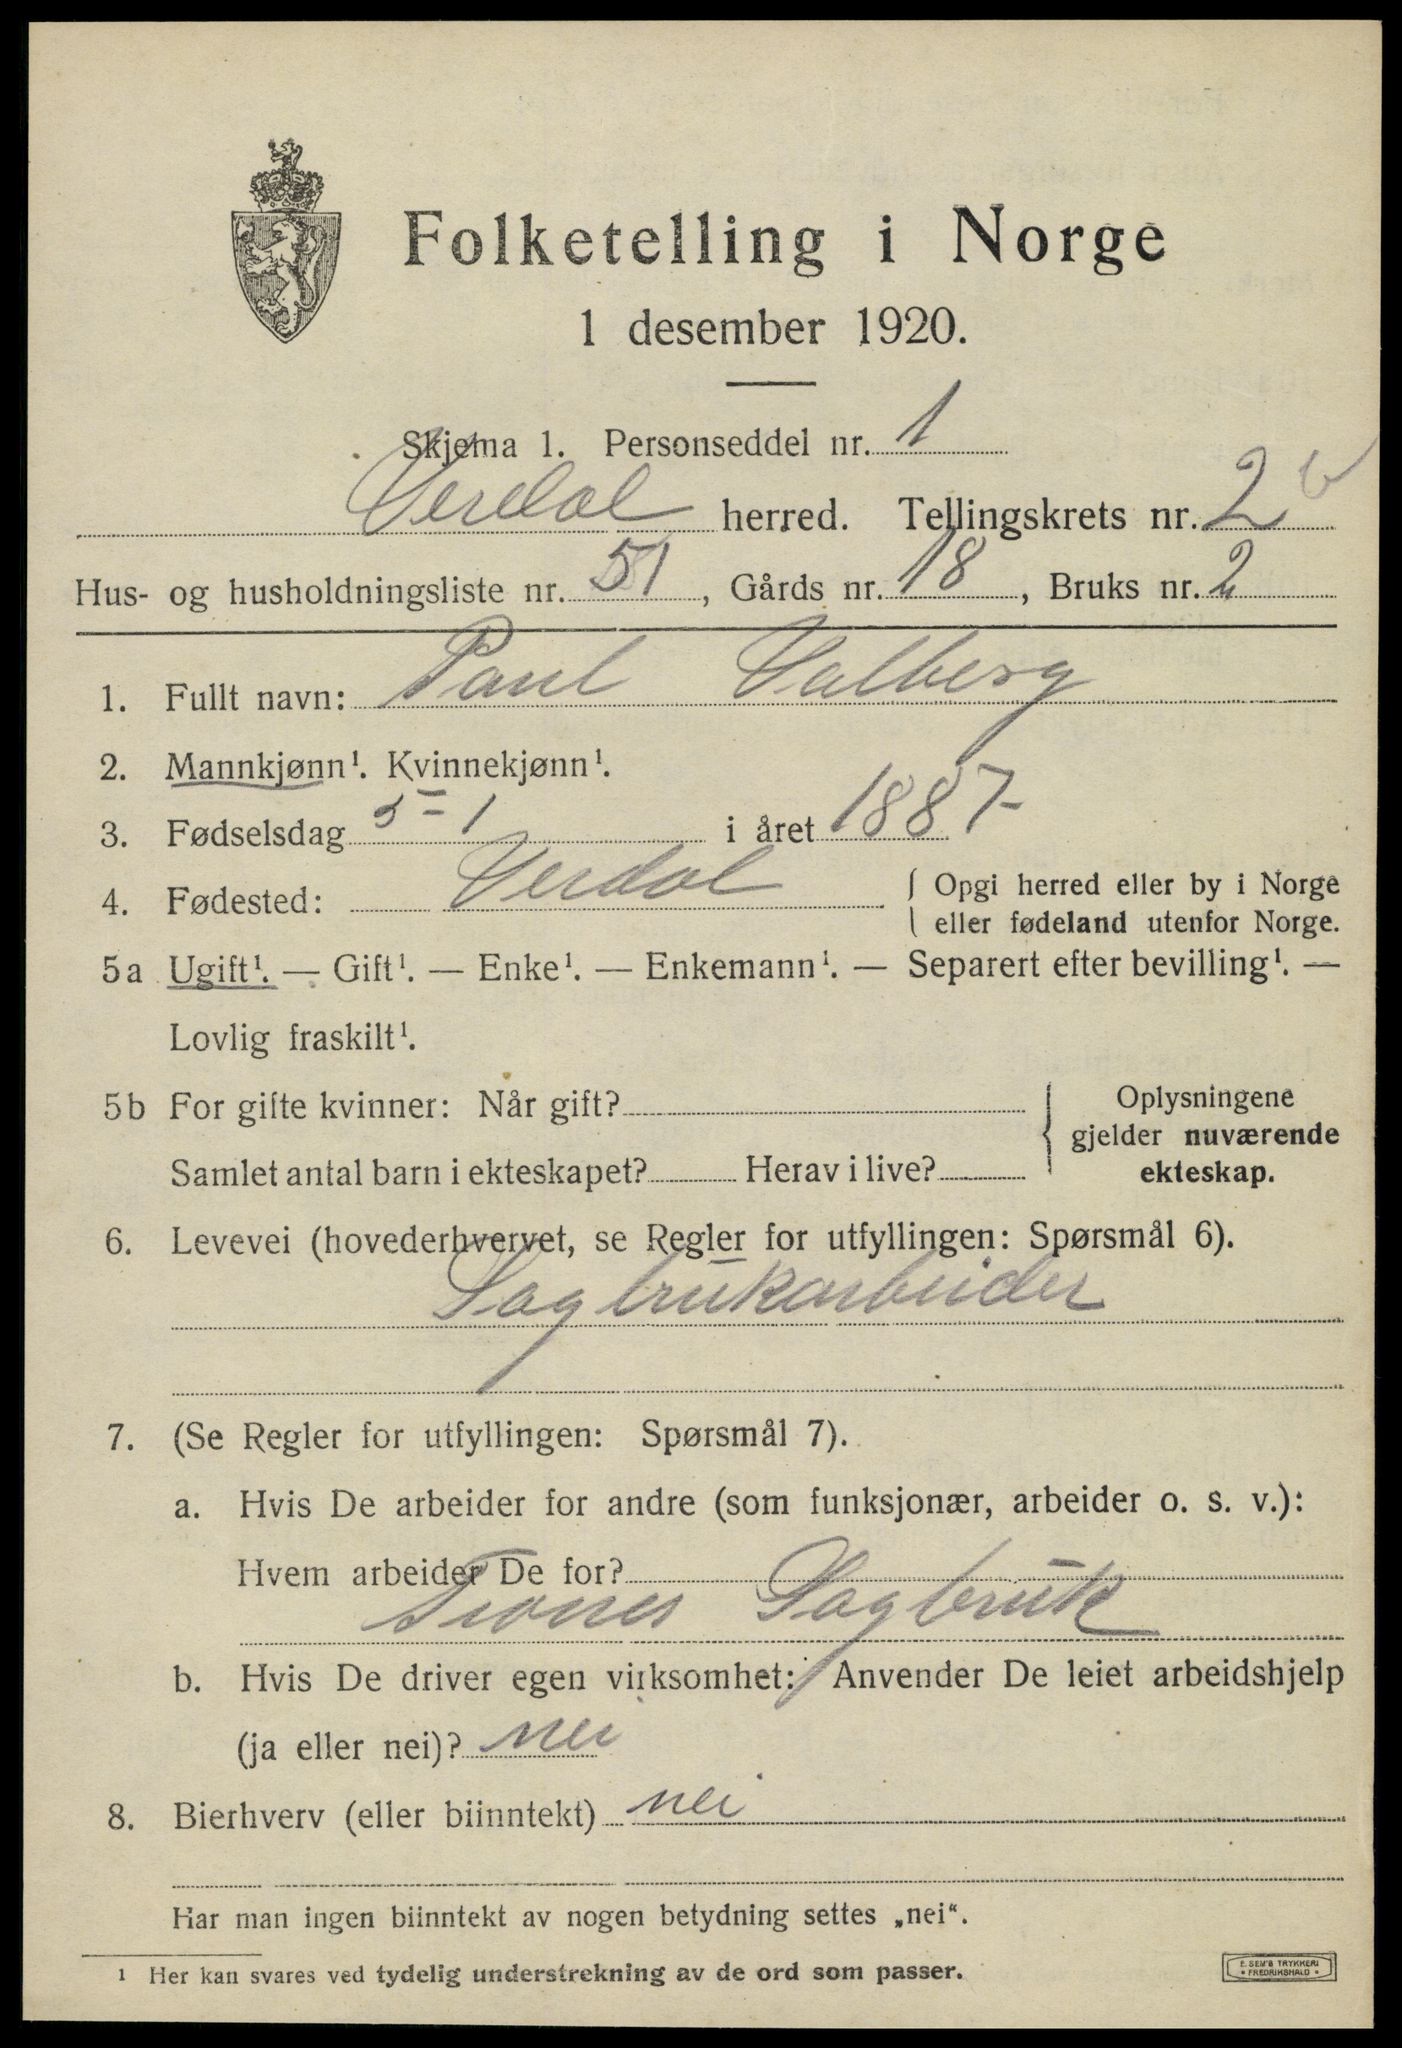 Folketelling i Norge
1 desember 1920.
Skjema 1. Personseddel nr. 1
Verdal herred. Tellingskrets nr. 2
Hus- og husholdningsliste nr. 51, Gårds nr. 18, Bruks nr. 2
1. Fullt navn: Paul Valberg
2. Mannkjønn¹. Kvinnekjønn¹.
3. Fødselsdag 5-1 i året 1887
4. Fødested: Verdal { Opgi herred eller by i Norge
eller fødeland utenfor Norge.
5a Ugift¹. — Gift¹. — Enke¹. — Enkemann¹. — Separert efter bevilling¹. —
Lovlig fraskilt¹.
5b For gifte kvinner: Når gift?
Samlet antal barn i ekteskapet? Herav i live?
Oplysningene
gjelder nuværende
ekteskap.
6. Levevei (hovederhvervet, se Regler for utfyllingen: Spørsmål 6).
Sagbrukarbeider
7. (Se Regler for utfyllingen: Spørsmål 7).
a. Hvis De arbeider for andre (som funksjonær, arbeider o. s. v.):
Hvem arbeider De for?
Trones Sagbruk
b. Hvis De driver egen virksomhet: Anvender De leiet arbeidshjelp
(ja eller nei)? nei
8. Bierhverv (eller biinntekt) nei
Har man ingen biinntekt av nogen betydning settes „nei“.
¹ Her kan svares ved tydelig understrekning av de ord som passer.
E. SEM'S TRYKKERI
• FREDRIKSHALD •